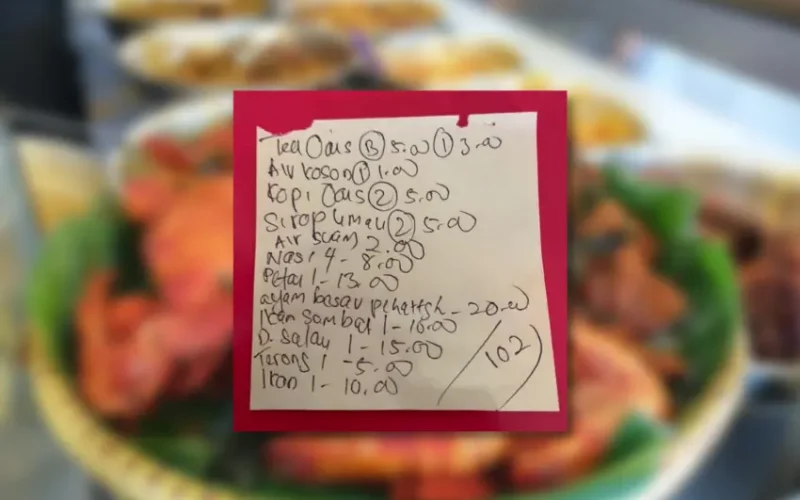 Tea Oais ③ 5.00 ① 3.00
Air Koson ① 1.00
Kopi Oais ② 5.00
Sirop Limau ② 5.00
Air suam 2.00
Nasi 4 - 8.00
Petai 1 - 13.00
ayam besar - 20.00
Ikan Sambal 1 - 10.00
D. Salay 1 - 15.00
Terong 1 - 5.00
Ikan 1 - 10.00
102